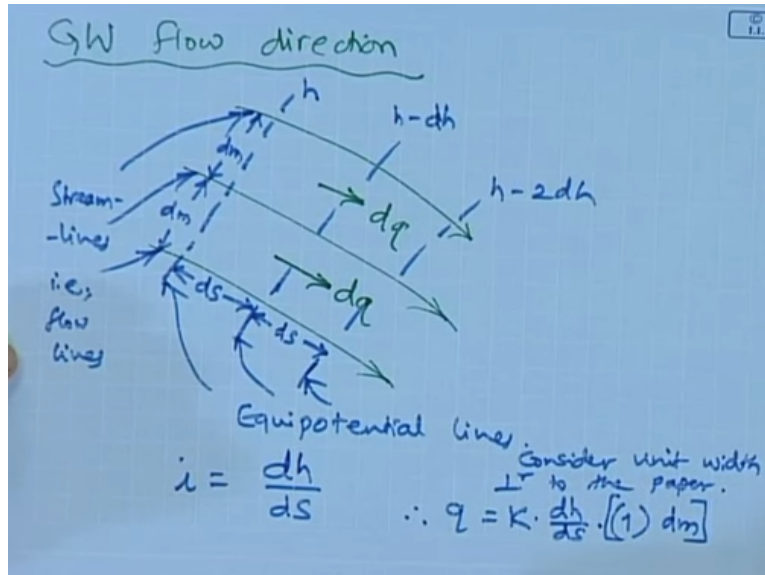 GW flow direction
h
h-dh
h-2dh
dm
dm
Stream-
-lines
i.e.,
flow
lines
dq
dq
ds
ds
Equipotential lines.
i = dh/ds
Consider unit width
⊥r to the paper.
∴ q = K · dh/ds · [(1) dm]
©
I.I.